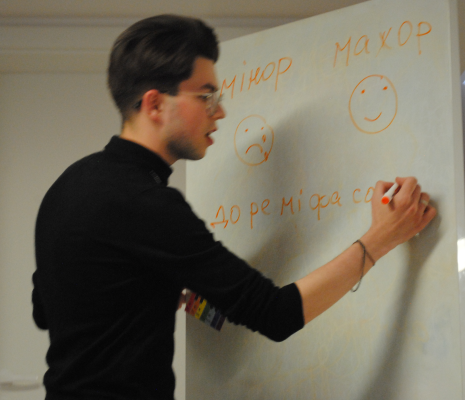 мінор мажор
до ре мі фа со